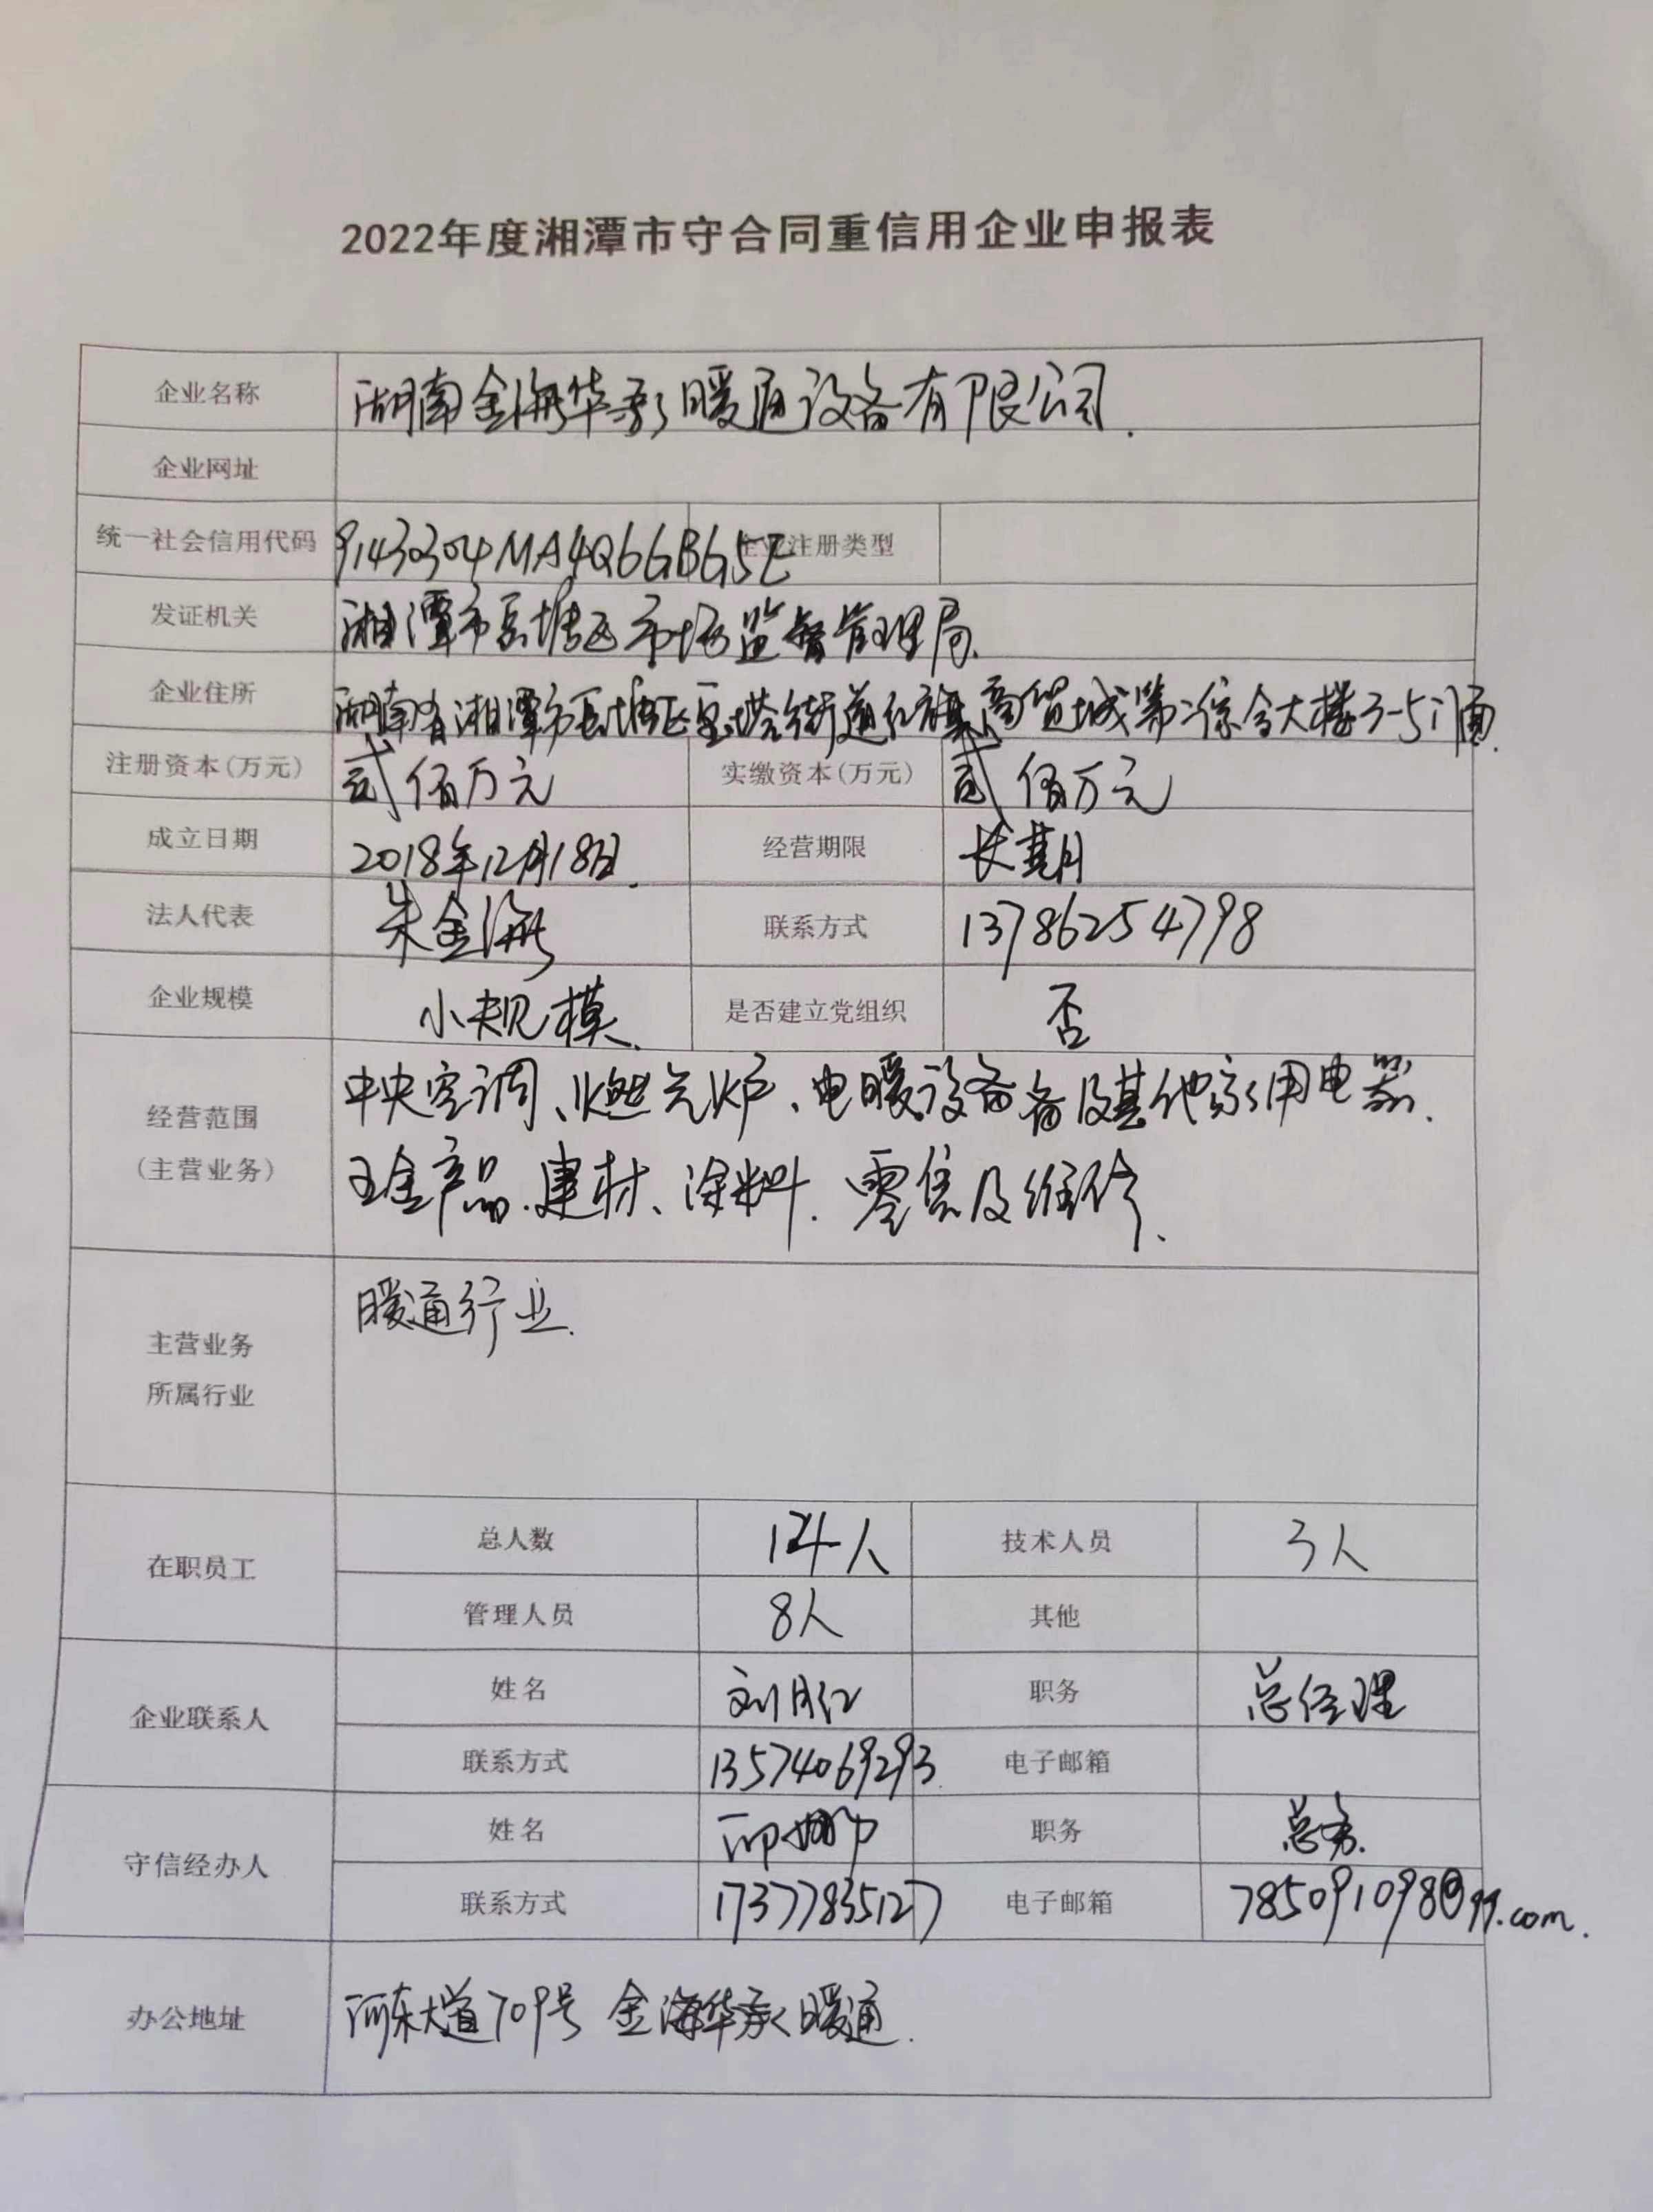 2022年度湘潭市守合同重信用企业申报表
企业名称 湖南金海华承暖通设备有限公司.
企业网址
统一社会信用代码 91430304MA4Q6GBG5E 企业注册类型
发证机关 湘潭市岳塘区市场监督管理局.
企业住所 湖南省湘潭市岳塘区宝塔街道红旗商贸城第二综合大楼3-5门面.
注册资本(万元) 贰佰万元 实缴资本(万元) 贰佰万元
成立日期 2018年12月18日. 经营期限 长期
法人代表 朱金海 联系方式 13786254798
企业规模 小规模. 是否建立党组织 否
经营范围 中央空调、燃气炉、电暖设备备及其他家用电器.
(主营业务) 五金产品.建材、涂料.零售及维修.
主营业务 暖通行业.
所属行业
在职员工 总人数 14人 技术人员 3人
管理人员 8人 其他
企业联系人 姓名 刘月红 职务 总经理
联系方式 13574069293. 电子邮箱
守信经办人 姓名 职务 总务.
联系方式 17377835127 电子邮箱 785091098@qq.com.
办公地址 河东大道709号 金海华承暖通.